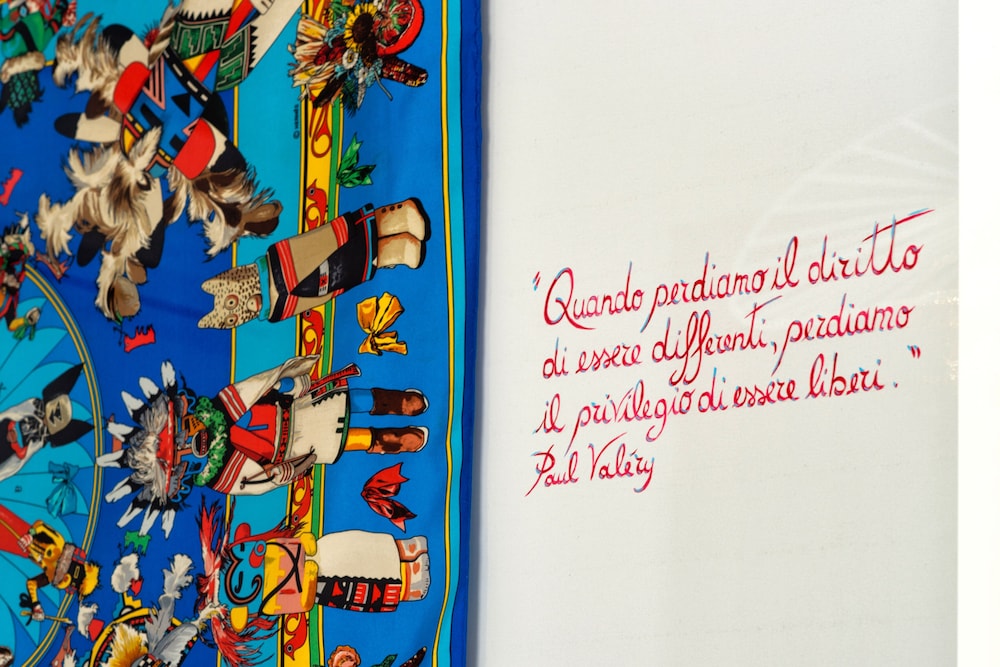 "Quando perdiamo il diritto
di essere differenti, perdiamo
il privilegio di essere liberi."
Paul Valéry